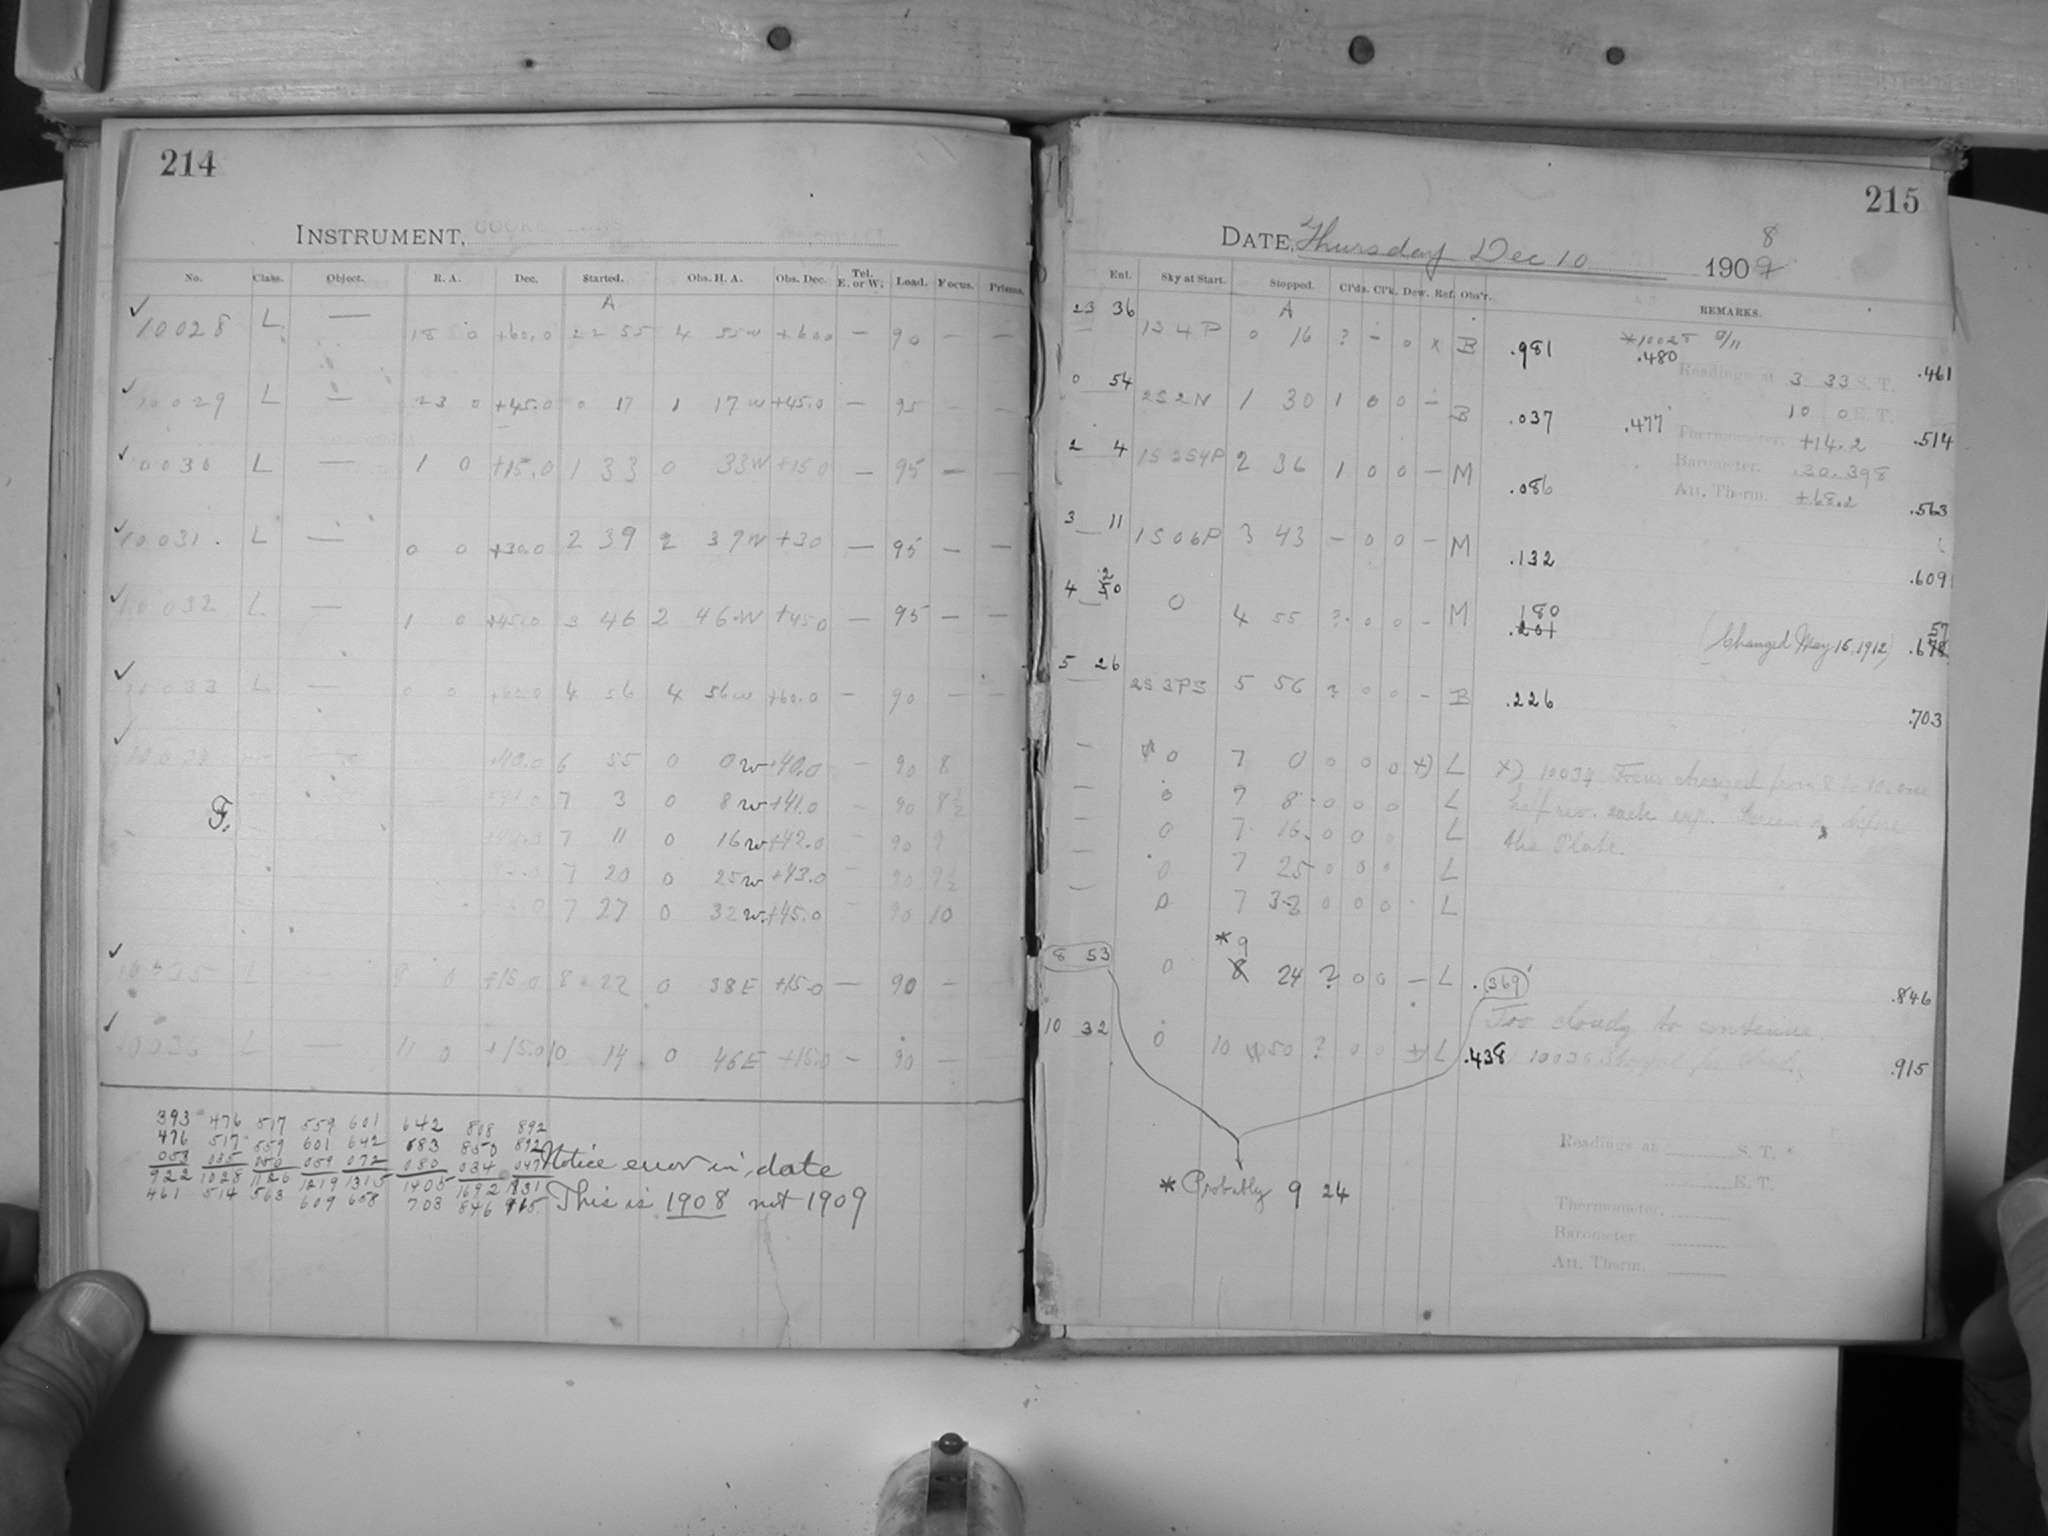 214
INSTRUMENT,
No. Class. Object. R. A. Dec. Started. Obs. H. A. Obs. Dec. Tel. E. or W. Load. Focus. Prisms.
A
10028 L — 18 0 +60.0 22 55 4 55w +60.0 — 90 — —
10029 L — 23 0 +45.0 0 17 1 17w +45.0 — 95 — —
10030 L — 1 0 +15.0 1 33 0 33W +15 0 — 95 — —
10031. L — 0 0 +30.0 2 39 2 39W +30 — 95 — —
10032 L — 1 0 +45.0 3 46 2 46.W +45.0 — 95 — —
10033 L — 0 0 +60.0 4 56 4 56w +60.0 — 90 — —
10034 +40.0 6 55 0 0w +40.0 — 90 8
+41.0 7 3 0 8w +41.0 — 90 8½
F. 7 11 0 16w +42.0 — 90 9
7 20 0 25w +43.0 — 90 9½
7 27 0 32w. +45.0 — 90 10
10035 L — 8 0 +15.0 8 22 0 38E +15.0 — 90 —
10036 L — 11 0 +15.0 10 14 0 46E +15.0 — 90 — —
393 476 517 559 601 642 808 892
476 517 559 601 642 683 850 892
053 035 050 059 072 080 034 047
922 1028 1126 1219 1315 1405 1692 1831
461 514 563 609 658 703 846 915
Notice error in date
This is 1908 not 1909
215
DATE, Thursday Dec 10 1909 8
Ent. Sky at Start. Stopped. Cl'ds. Cl'k. Dew. Ref. Obs'r. REMARKS.
A
23 36 1S4P 0 16 ? — 0 x B .981 .480 .461
Readings at 3 33 S. T.
0 54 2S2N 1 30 1 0 0 — B .037 .477 .514
10 0 E. T.
Thermometer. +14.2
2 4 1S2S4P 2 36 1 0 0 — M .086 .563
Barometer. 30.398
Att. Therm. +68.2
3 11 1S06P 3 43 — 0 0 — M .132 .609
4 20 0 4 55 ? 0 0 — M .180 (Changed May 16, 1912) .657
5 26 2S3PS 5 56 ? 0 0 — B .226 .703
— 0 7 0 0 0 0 x) L x) 10034 Focus changed from 8 to 10. one
— 0 7 8 0 0 0 L half rev. each exp. Screen is before
— 0 7 16 0 0 0 L the Plate.
— 0 7 25 0 0 0 L
— 0 7 32 0 0 0 L
* 9
8 53 0 8 24 ? 0 0 — L .369 .846
Too cloudy to continue.
10 32 0 10 50 ? 0 0 L .438 10036 Stopped for clouds. .915
* Probably 9 24
Readings at S. T.
E. T.
Thermometer.
Barometer.
Att. Therm.